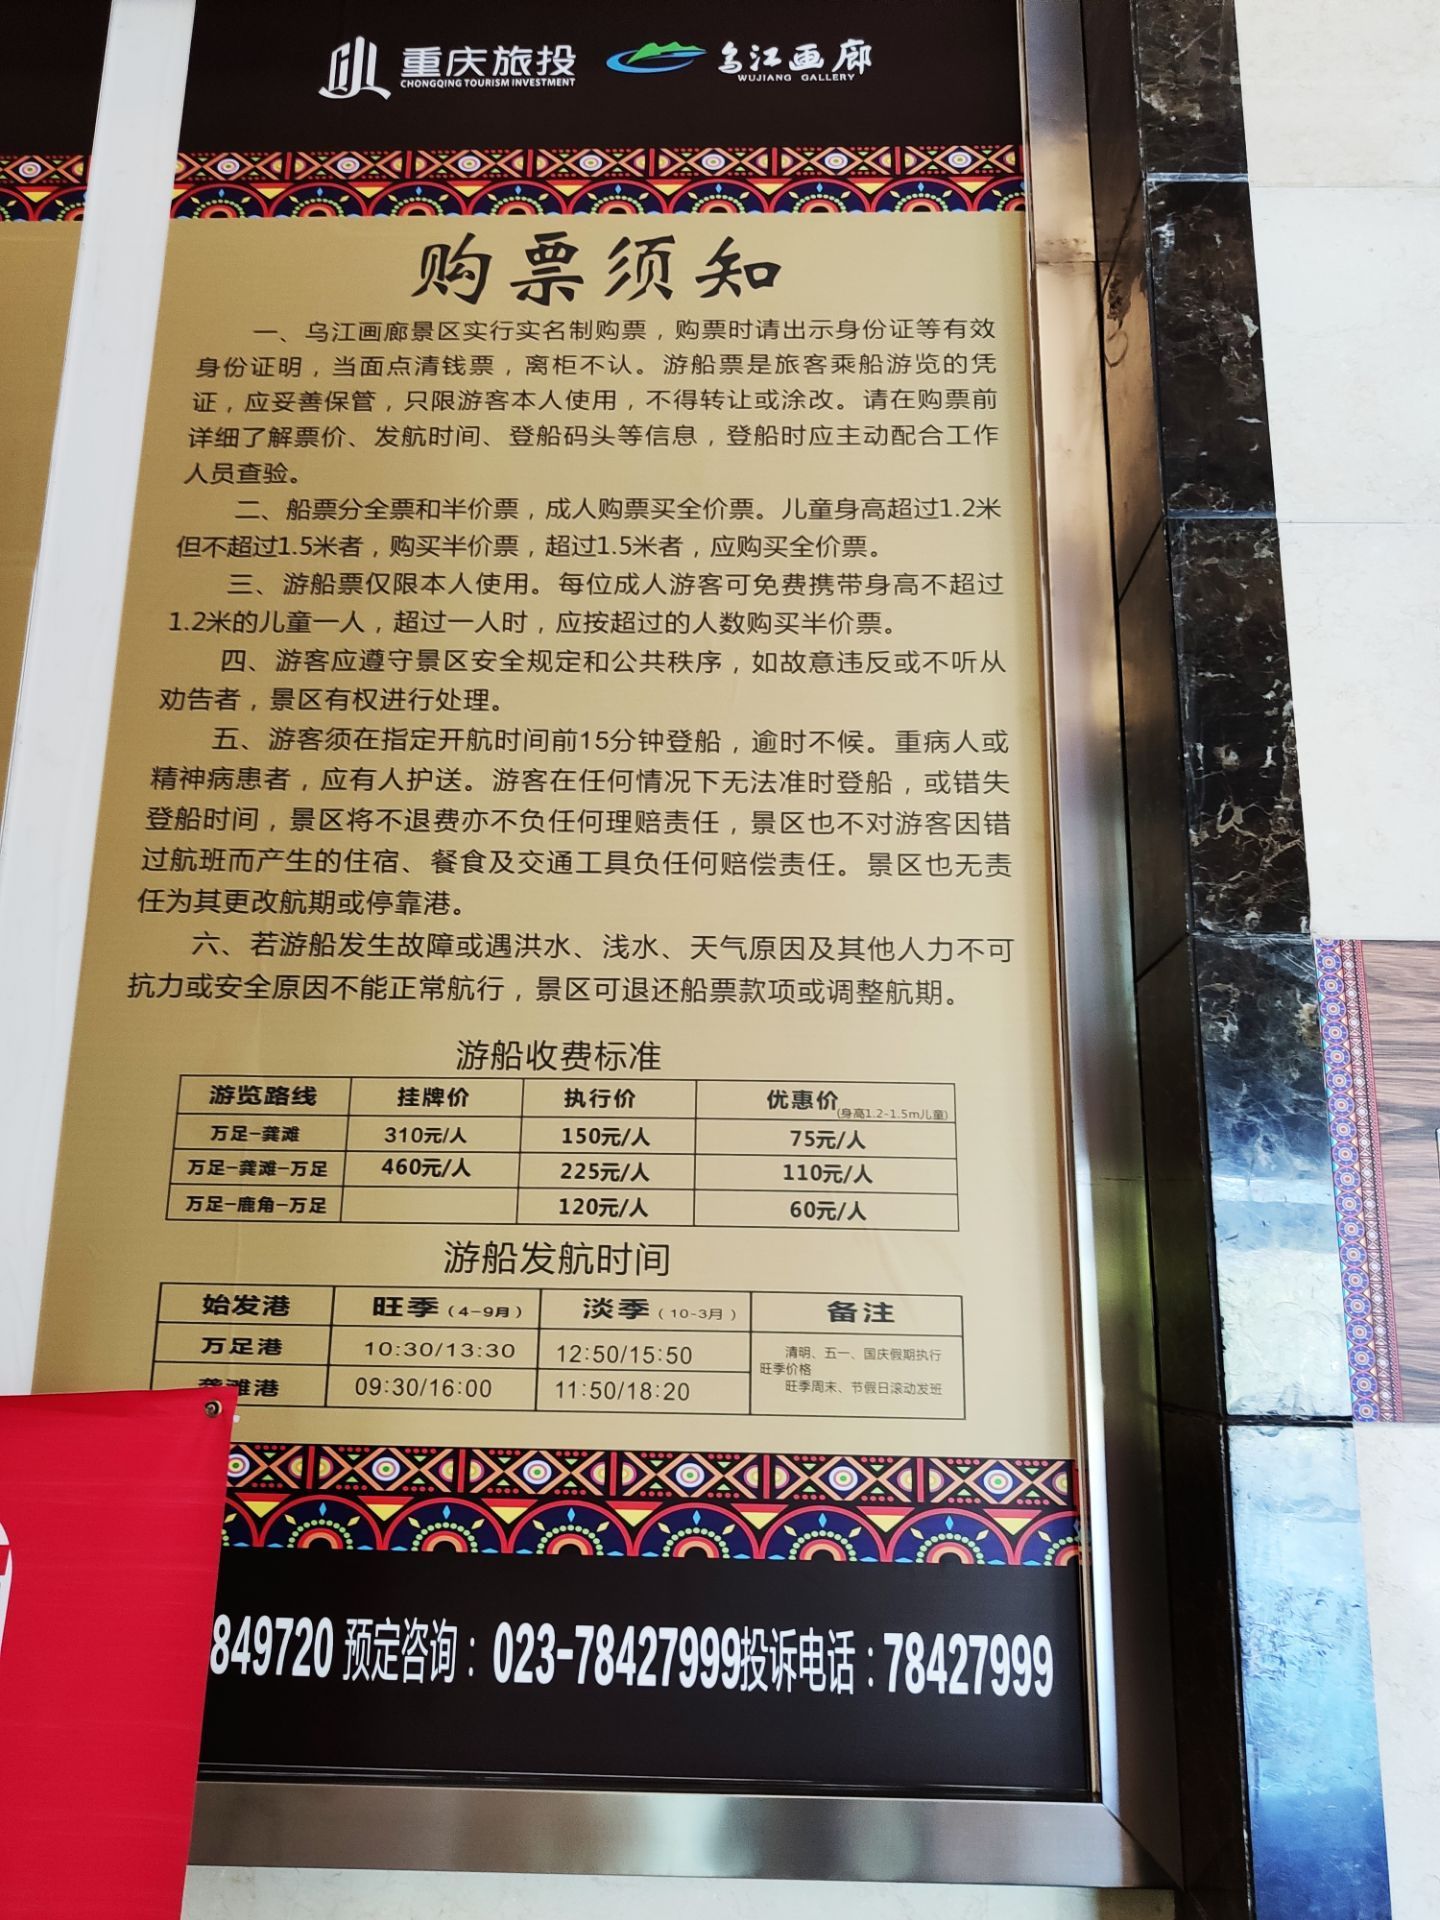 重庆旅投 乌江画廊
CHONGQING TOURISM INVESTMENT WUJIANG GALLERY
购票须知
一、乌江画廊景区实行实名制购票，购票时请出示身份证等有效
身份证明，当面点清钱票，离柜不认。游船票是旅客乘船游览的凭
证，应妥善保管，只限游客本人使用，不得转让或涂改。请在购票前
详细了解票价、发航时间、登船码头等信息，登船时应主动配合工作
人员查验。
二、船票分全票和半价票，成人购票买全价票。儿童身高超过1.2米
但不超过1.5米者，购买半价票，超过1.5米者，应购买全价票。
三、游船票仅限本人使用。每位成人游客可免费携带身高不超过
1.2米的儿童一人，超过一人时，应按超过的人数购买半价票。
四、游客应遵守景区安全规定和公共秩序，如故意违反或不听从
劝告者，景区有权进行处理。
五、游客须在指定开航时间前15分钟登船，逾时不候。重病人或
精神病患者，应有人护送。游客在任何情况下无法准时登船，或错失
登船时间，景区将不退费亦不负任何理赔责任，景区也不对游客因错
过航班而产生的住宿、餐食及交通工具负任何赔偿责任。景区也无责
任为其更改航期或停靠港。
六、若游船发生故障或遇洪水、浅水、天气原因及其他人力不可
抗力或安全原因不能正常航行，景区可退还船票款项或调整航期。
游船收费标准
游览路线 挂牌价 执行价 优惠价(身高1.2-1.5m儿童)
万足-龚滩 310元/人 150元/人 75元/人
万足-龚滩-万足 460元/人 225元/人 110元/人
万足-鹿角-万足 120元/人 60元/人
游船发航时间
始发港 旺季（4-9月） 淡季（10-3月） 备注
万足港 10:30/13:30 12:50/15:50 清明、五一、国庆假期执行
旺季价格
龚滩港 09:30/16:00 11:50/18:20 旺季周末、节假日滚动发班
849720 预定咨询：023-78427999投诉电话：78427999